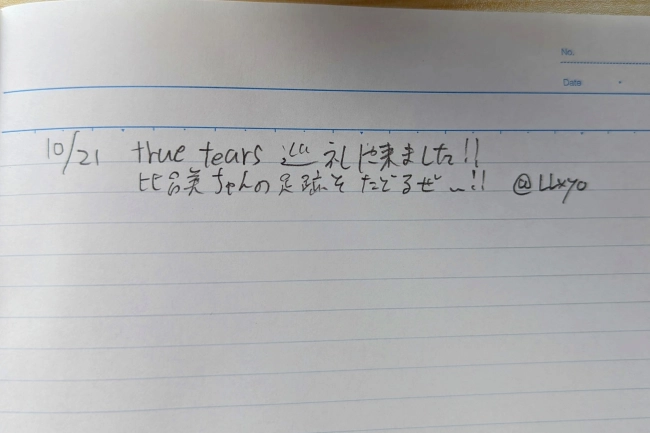 No.
Date
10/21 true tears 巡礼に来ました!!
比呂美ちゃんの足跡をたどるぜー!! @LLxyo